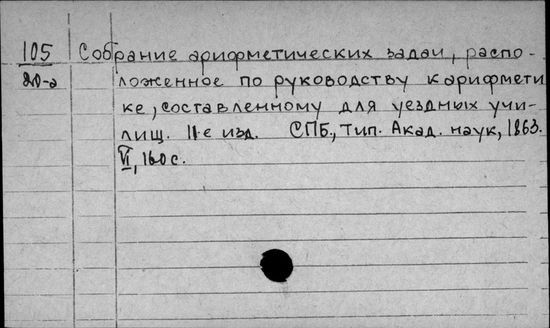 105 Собрание арифметических задач, распо-
20-а ложенное по руководству к арифмети
ке, составленному для уездных учи-
лищ. 11-е изд. СПБ., Тип. Акад. наук, 1863.
VI, 160 с.